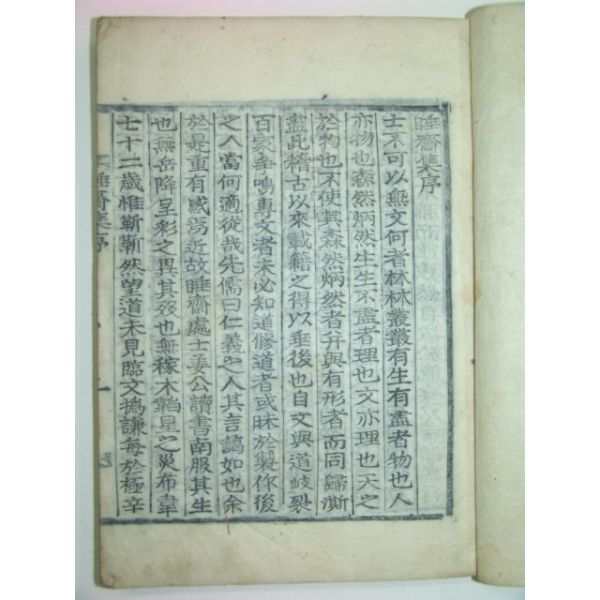 睡齋集序
士不可以無文何者林林叢叢有生有盡者物也人
亦物也森然炳然生生不盡者理也文亦理也天之
於物也不使其森然炳然者幷與有形者而同歸澌
盡此稽古以來載籍之得以垂後也自文與道歧裂
百家爭鳴專文者未必知道修道者或昧於製作後
之人當何適從哉先儒曰仁義之人其言藹如也余
於是重有感焉近故睡齋處士姜公讀書南服其生
也無岳降呈彩之異其歿也無稼木韜星之災布韋
七十二歲惟蘄蘄然望道未見臨文撝謙每於極辛
睡齋集序
一